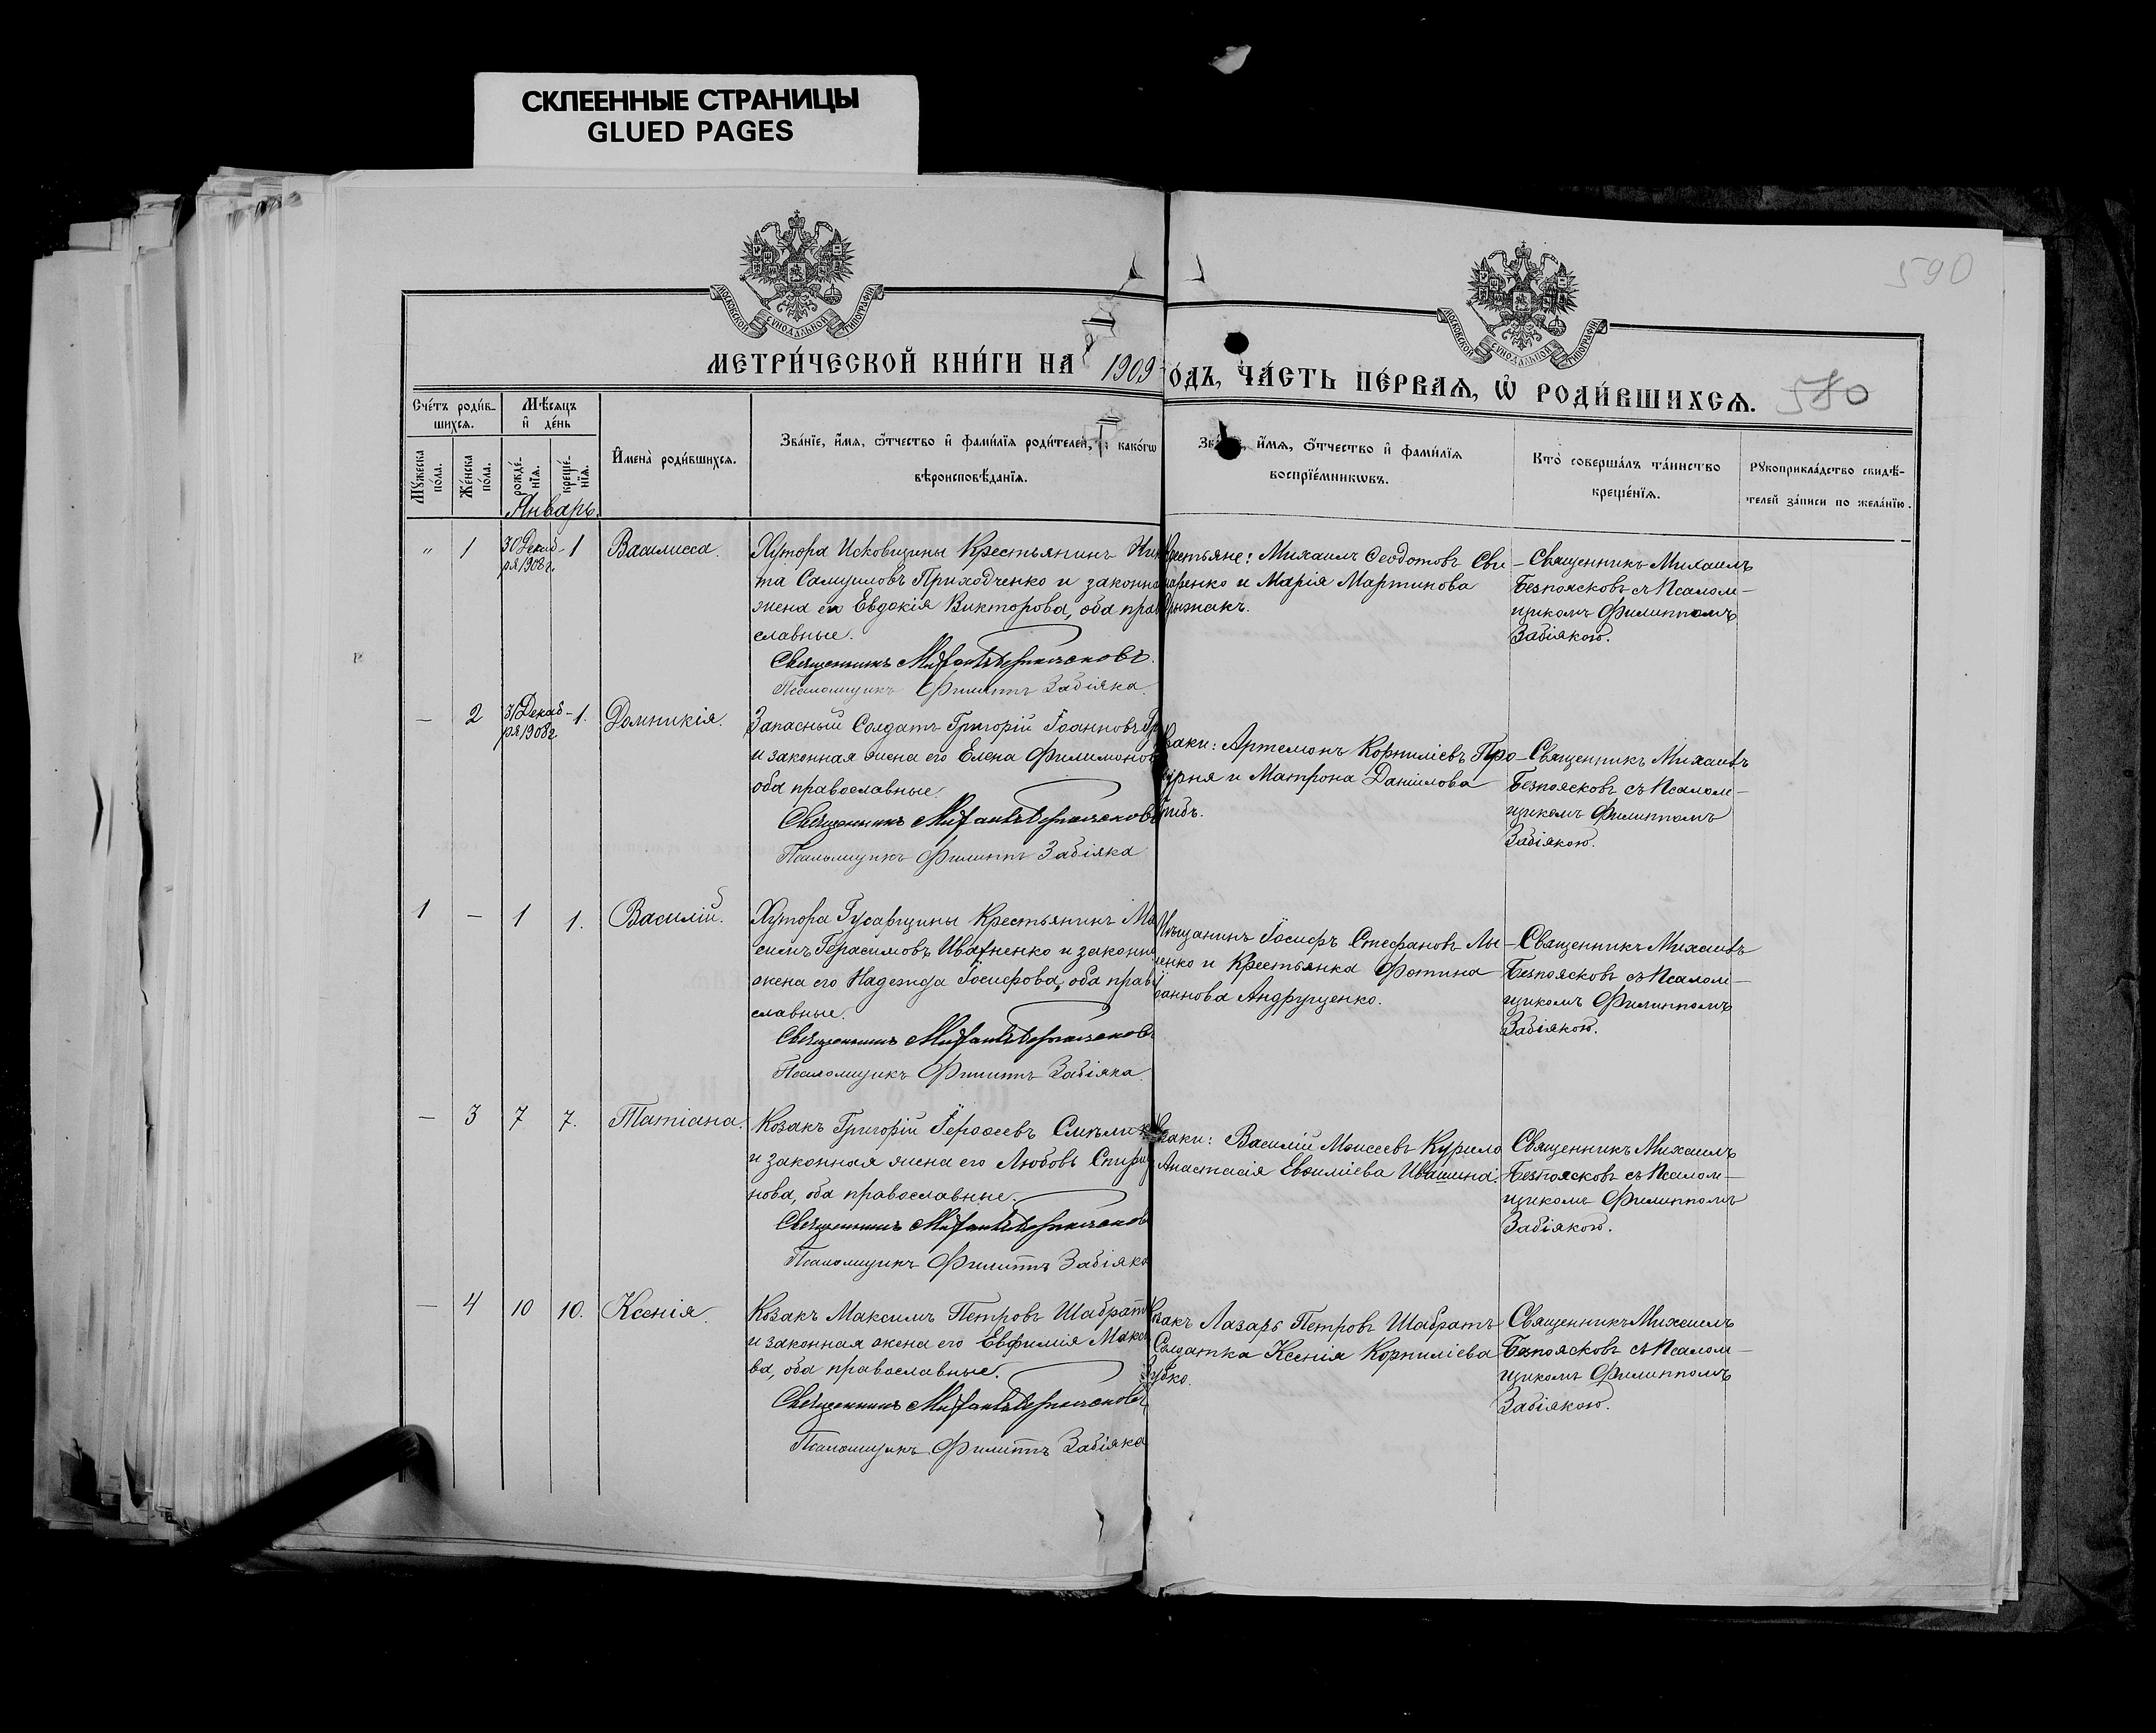 СКЛЕЕННЫЕ СТРАНИЦЫ
GLUED PAGES
590
МОСКОВСКОЙ СИНОДАЛЬНОЙ ТИПОГРАФІИ
МОСКОВСКОЙ СИНОДАЛЬНОЙ ТИПОГРАФІИ
МЕТРИ́ЧЕСКОЙ КНИ́ГИ НА 1909
ОДЪ, ЧА́СТЬ ПЕ́РВАѦ, Ѡ҆ РОДИ́ВШИХСѦ.
580
Сче́тъ роди́в-
шихсѧ.
Мѣ́сѧцъ
и҆ де́нь
Мꙋ́жеска по́ла.
Же́нска по́ла.
рожде́нїѧ.
креще́нїѧ.
И҆мена̀ роди́вшихсѧ.
Зва́нїе, и҆́мѧ, ѻ҆́тчество и҆ фами́лїѧ роди́телей, и҆ како́гѡ
вѣроисповѣ́данїѧ.
и҆́мѧ, ѻ҆́тчество и҆ фами́лїѧ
воспрїе́мникѡвъ.
Кто̀ соверша́лъ та́инство
креще́нїѧ.
Рꙋкоприкла́дство свидѣ́-
телей за́писи по жела́нїю.
Январь.
" 1 30 Декаб- 1 Василисса.
ря 1908 г.
Хутора Исковщины Крестьянинъ Ни
та Самуиловъ Приходченко и законна
жена его Евдокія Викторова, оба пра
славные.
Священникъ Михаилъ Безпоясковъ.
Псаломщикъ Филиппъ Забіяка.
рестьяне: Михаилъ Ѳеодотовъ Сви
аренко и Марія Мартинова
Священникъ Михаилъ
Безпоясковъ съ Псалом-
щикомъ Филиппомъ
Забіякою.
— 2 31 Декаб- 1. Домникія.
ря 1908 г.
Запасный Солдатъ Григорій Іоанновъ
и законная жена его Елена Филимонов
оба православные.
Священникъ Михаилъ Безпоясковъ
Псаломщикъ Филиппъ Забіяка
заки: Артемонъ Корниліевъ Про-
и Матрона Даніилова
Священникъ Михаилъ
Безпоясковъ съ Псалом-
щикомъ Филиппомъ
Забіякою.
1 — 1 1. Василій.
Хутора Гусавщины Крестьянинъ Ма
симъ Герасимовъ Ивахненко и законна
жена его Надежда Іосифова, оба прав
славные.
Священникъ Михаилъ Безпоясковъ
Псаломщикъ Филиппъ Забіяка
Мѣщанинъ Іосифъ Стефановъ Лы-
енко и Крестьянка Фотина
оаннова Андрущенко.
Священникъ Михаилъ
Безпоясковъ съ Псалом-
щикомъ Филиппомъ
Забіякою.
— 3 7 7. Татіана.
Козакъ Григорій Смѣли
и законная жена его Любовь Спири
нова, оба православные.
Священникъ Михаилъ Безпоясковъ
Псаломщикъ Филиппъ Забіяка
заки: Василій Моисеевъ Курило
Анастасія Евѳиміева Ивашина.
Священникъ Михаилъ
Безпоясковъ съ Псалом-
щикомъ Филиппомъ
Забіякою.
— 4 10 10. Ксенія.
Козакъ Максимъ Петровъ Шабрат
и законная жена его Евфимія Макси
ва, оба православные.
Священникъ Михаилъ Безпоясковъ
Псаломщикъ Филиппъ Забіяка
закъ Лазарь Петровъ Шабратъ
Солдатка Ксенія Корниліева
Зубко.
Священникъ Михаилъ
Безпоясковъ съ Псалом-
щикомъ Филиппомъ
Забіякою.